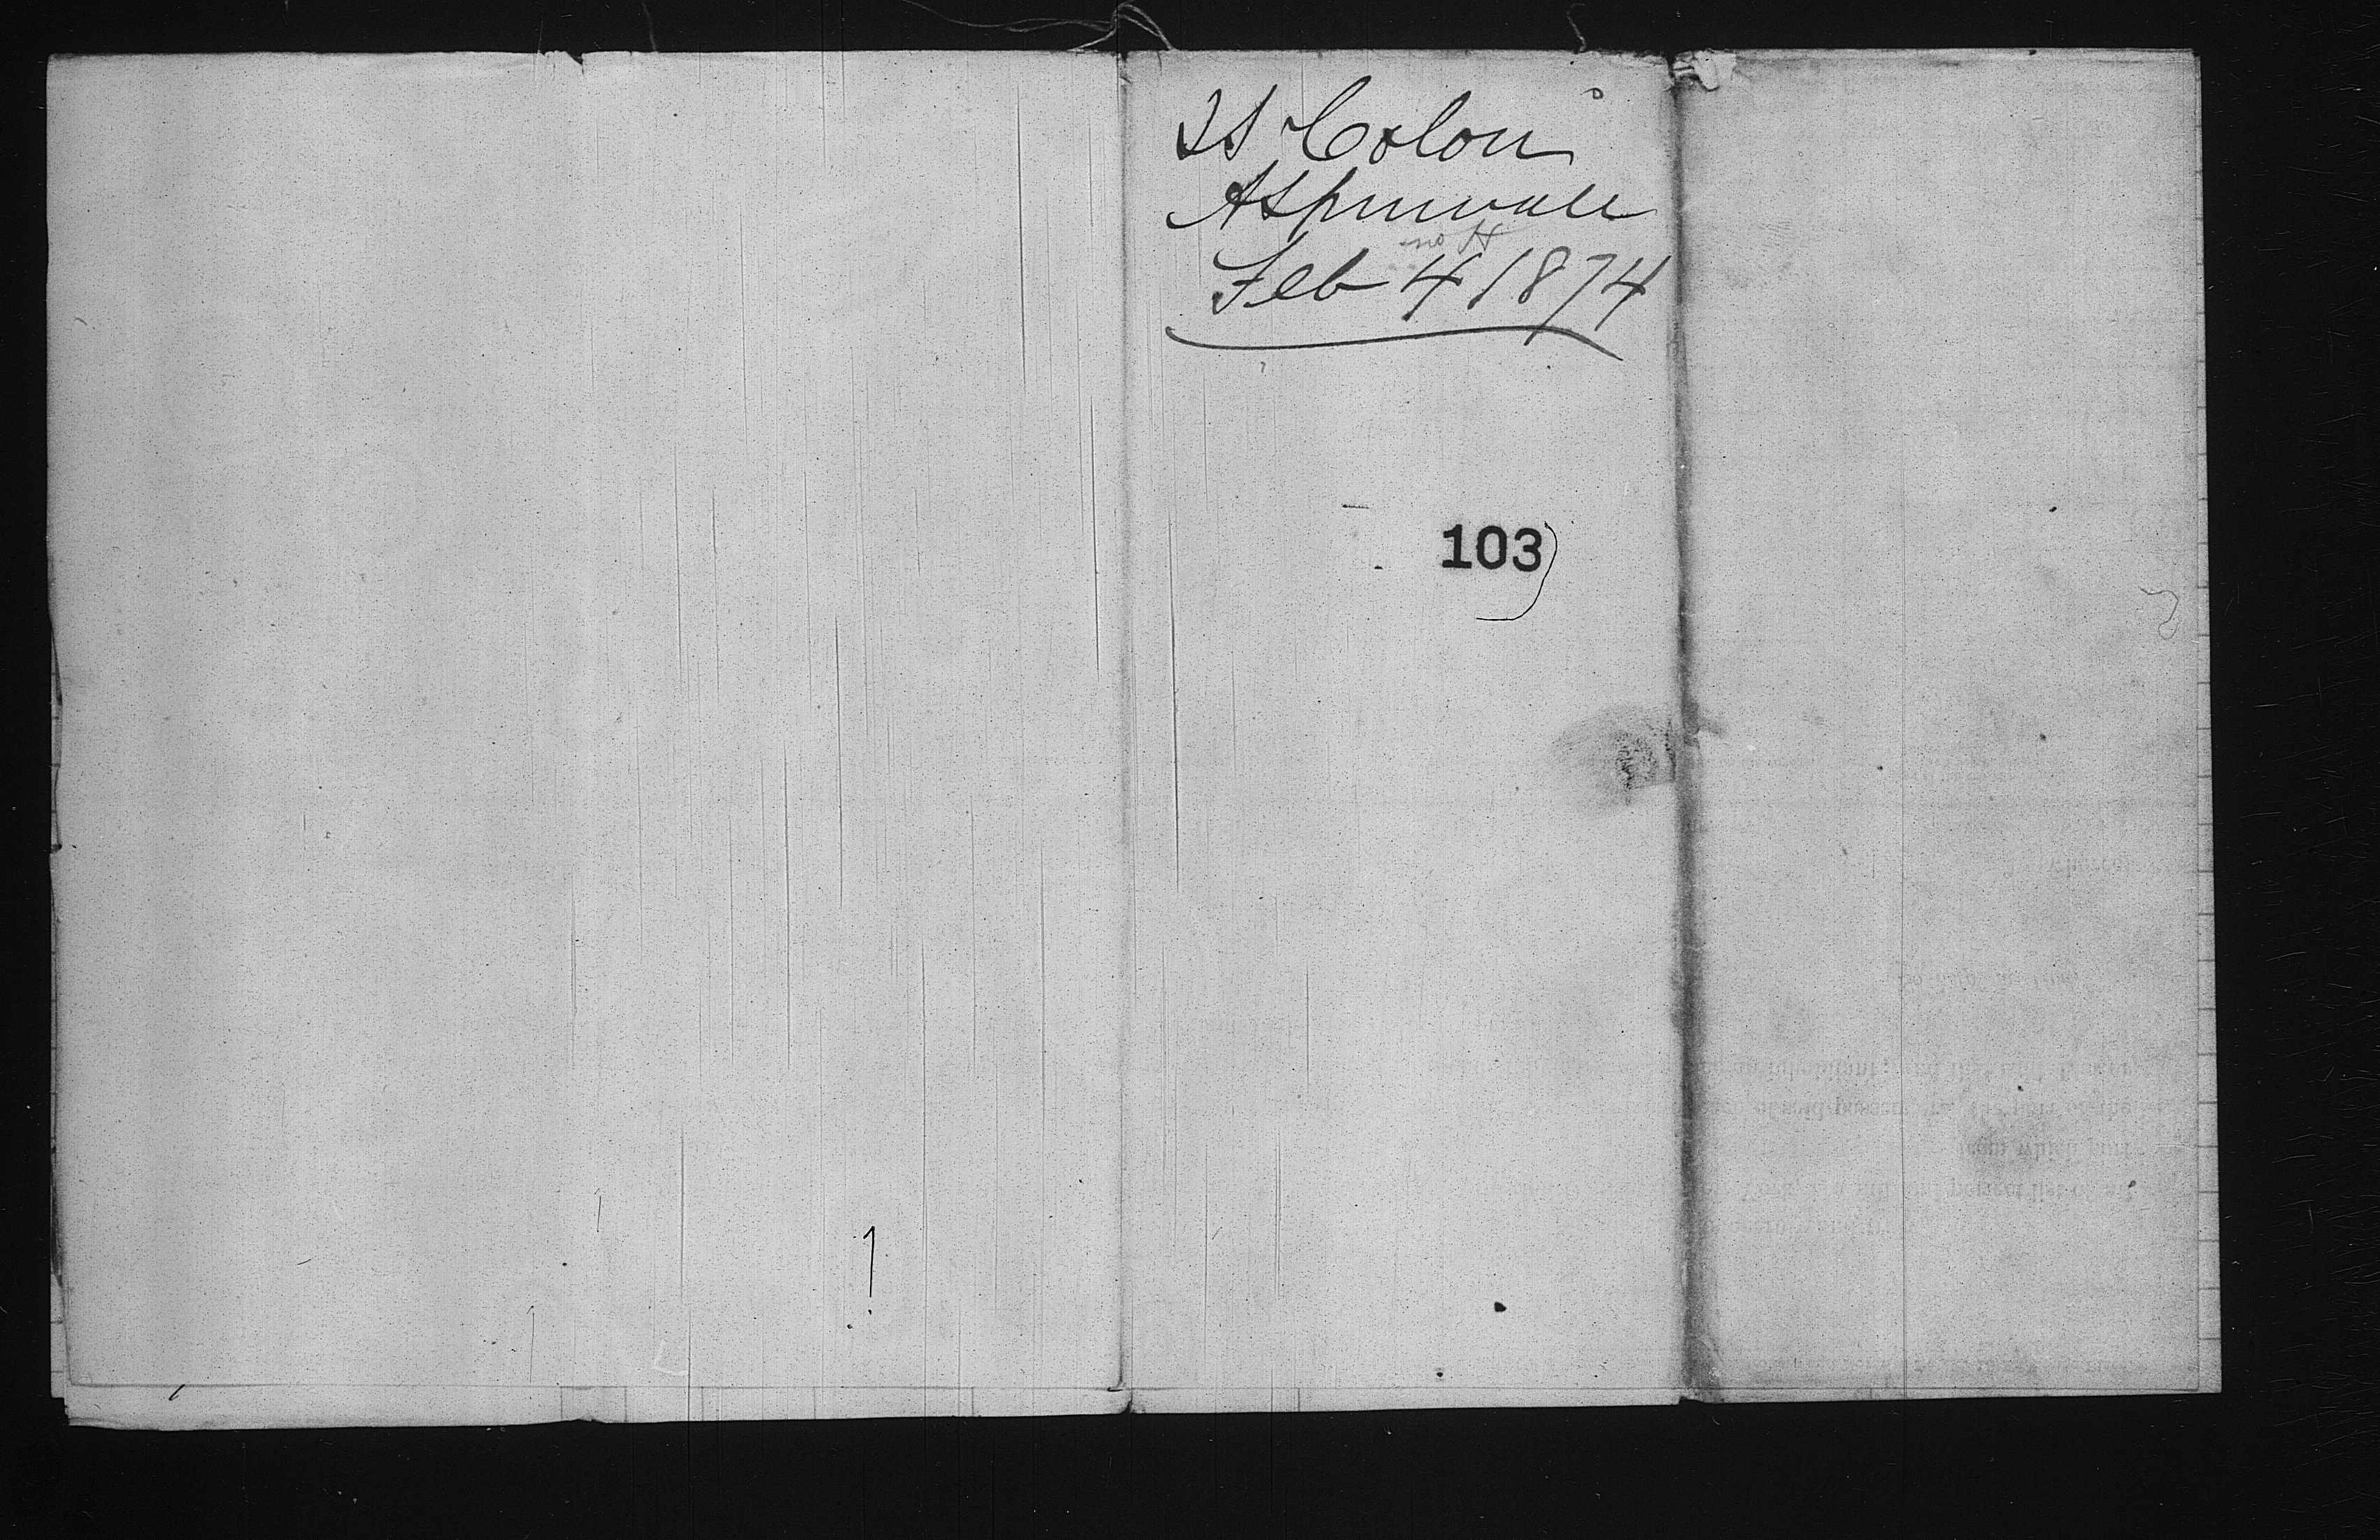 SS Colon
Aspinwall
no H
Feb 4 1874
103